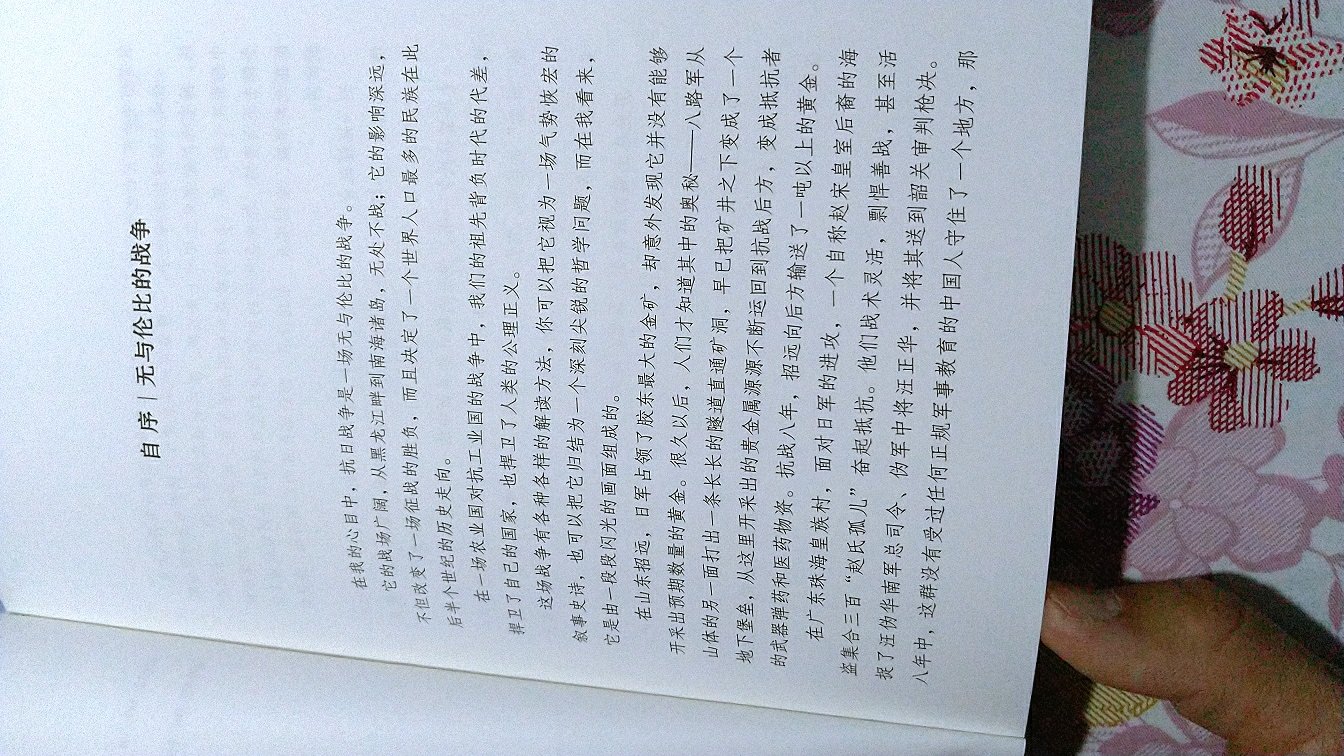 自序｜无与伦比的战争
在我的心目中，抗日战争是一场无与伦比的战争。
它的战场广阔，从黑龙江畔到南海诸岛，无处不战；它的影响深远，
不但改变了一场征战的胜负，而且决定了一个世界人口最多的民族在此
后半个世纪的历史走向。
在一场农业国对抗工业国的战争中，我们的祖先背负时代的代差，
捍卫了自己的国家，也捍卫了人类的公理正义。
这场战争有各种各样的解读方法，你可以把它视为一场气势恢宏的
叙事史诗，也可以把它归结为一个深刻尖锐的哲学问题，而在我看来，
它是由一段段闪光的画面组成的。
在山东招远，日军占领了胶东最大的金矿，却意外发现它并没有能够
开采出预期数量的黄金。很久以后，人们才知道其中的奥秘——八路军从
山体的另一面打出一条长长的隧道直通矿洞，早已把矿井之下变成了一个
地下堡垒，从这里开采出的贵金属源源不断运回到抗战后方，变成抵抗者
的武器弹药和医药物资。抗战八年，招远向后方输送了一吨以上的黄金。
在广东珠海皇族村，面对日军的进攻，一个自称赵宋皇室后裔的海
盗集合三百“赵氏孤儿”奋起抵抗。他们战术灵活，剽悍善战，甚至活
捉了汪伪华南军总司令、伪军中将汪正华，并将其送到韶关审判枪决。
八年中，这群没有受过任何正规军事教育的中国人守住了一个地方，那